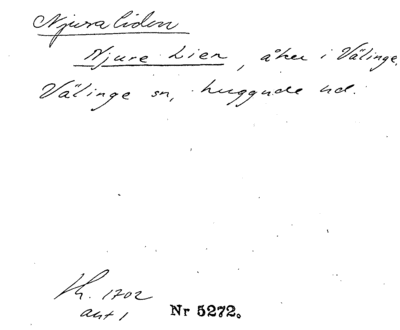 Njuraliden
Njure Lien, åker i Välinge,
Välinge sn, Luggude hd.
Lh. 1702
akt 1 Nr 5272.